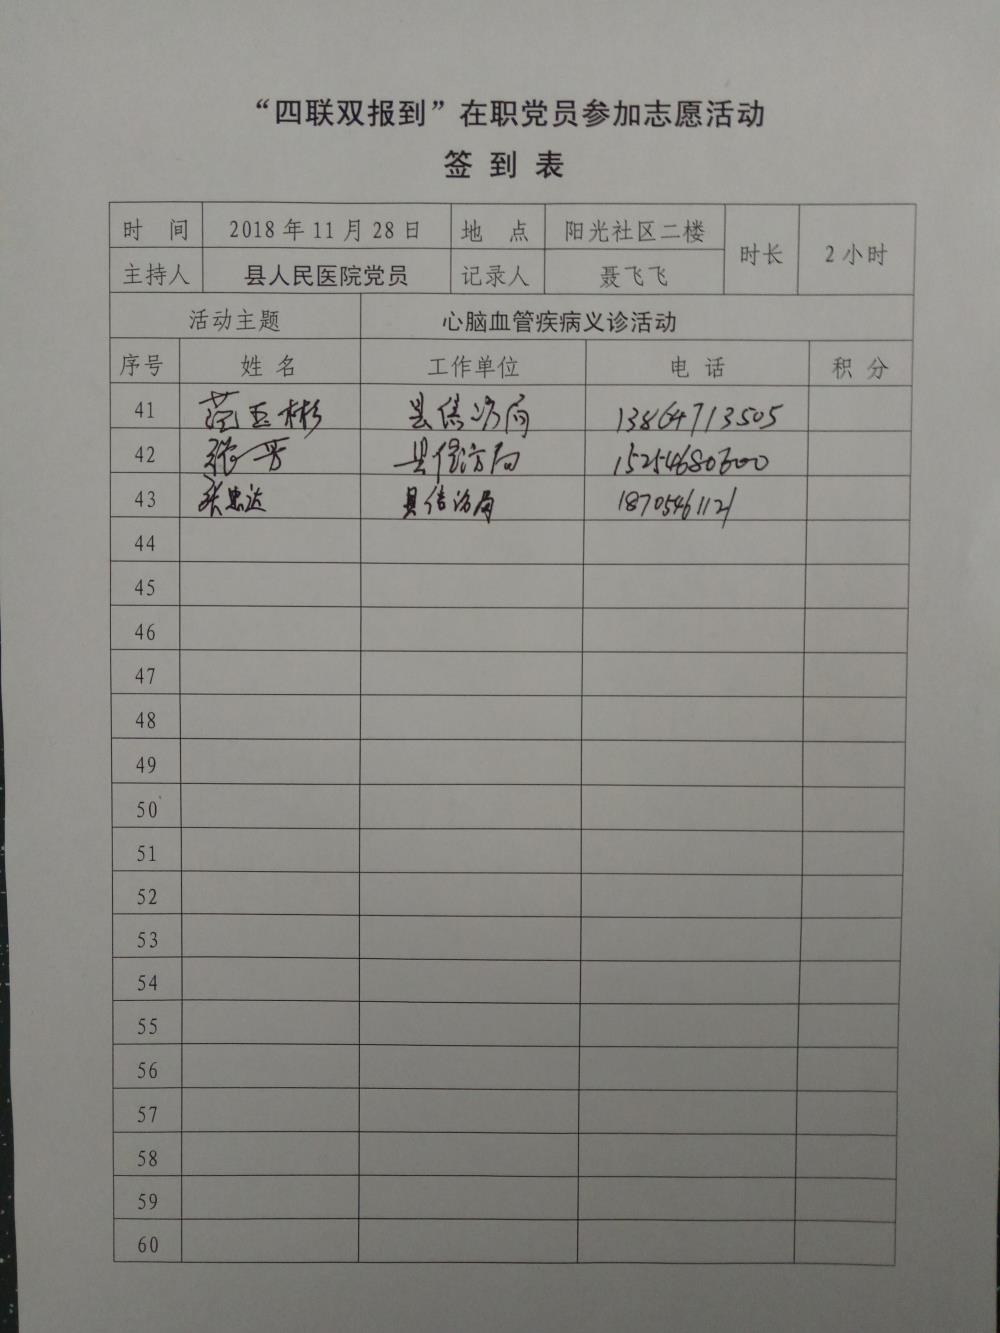 “四联双报到”在职党员参加志愿活动
签 到 表
时 间 2018 年 11 月 28 日 地 点 阳光社区二楼 时长 2 小时
主持人 县人民医院党员 记录人 聂飞飞
活动主题 心脑血管疾病义诊活动
序号 姓 名 工作单位 电 话 积 分
41 范玉彬 县信访局 13864713505
42 张芳 县信访局 15254680600
43 张忠达 县信访局 1870546112
44
45
46
47
48
49
50
51
52
53
54
55
56
57
58
59
60